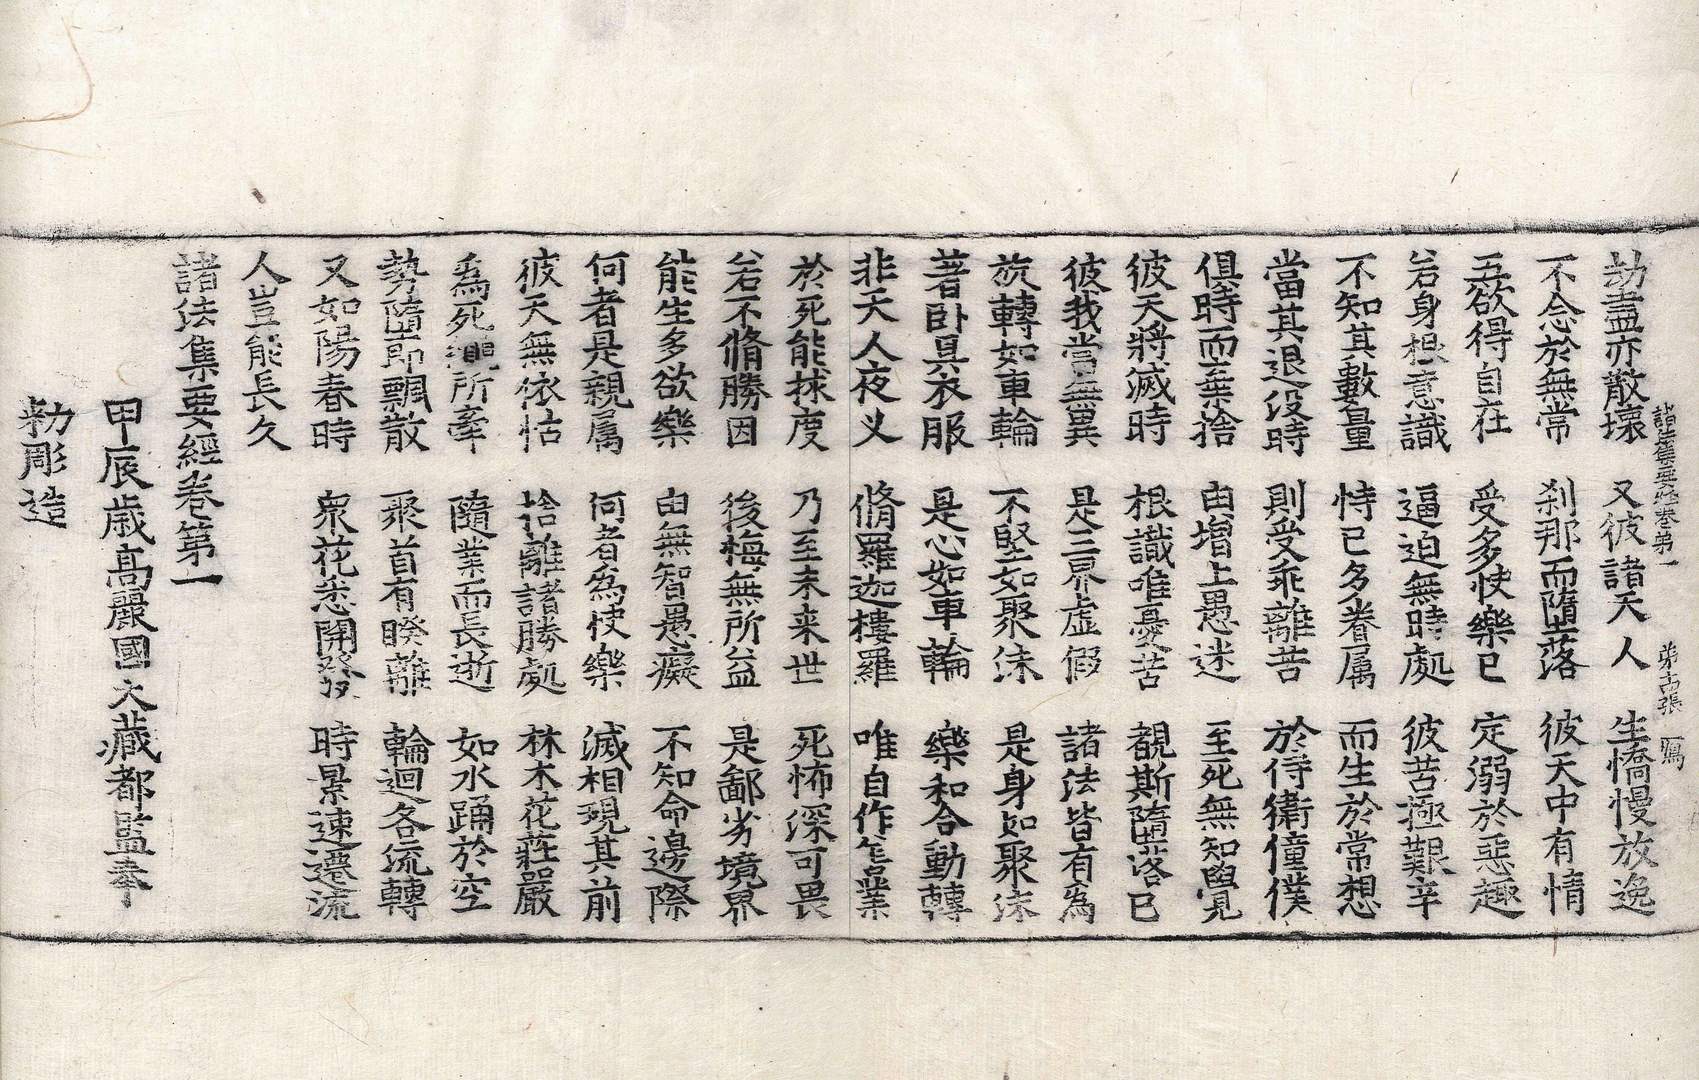 諸法集要經卷第一　第古張　寫
劫盡亦散壞　又彼諸天人　生憍慢放逸
不念於無常　刹那而墮落　彼天中有情
五欲得自在　受多快樂已　定溺於惡趣
若身根意識　逼迫無時處　彼苦極艱辛
不知其數量　恃已多眷属　而生於常想
當其退没時　則受乖離苦　於侍衛僮僕
俱時而棄捨　由增上愚迷　至死無知覺
彼天將滅時　根識唯憂苦　觀斯墮落已
彼我當無異　是三界虛假　諸法皆有爲
旋轉如車輪　不堅如聚沫　是身如聚沫
著卧具衣服　是心如車輪　樂和合動轉
非天人夜叉　脩羅迦樓羅　唯自作筈業
於死能捄度　乃至未来世　死怖深可畏
若不脩勝因　後悔無所益　是鄙劣境界
能生多欲樂　由無智愚癡　不知命邊際
何者是親属　何者爲快樂　滅相現其前
彼天無依怙　捨離諸勝處　林木花莊嚴
爲死繩所牽　隨業而長逝　如水踊於空
勢墮即飄散　聚首有睽離　輪迴各流轉
又如陽春時　衆花悉開發　時景速遷流
人豈能長久
諸法集要經卷第一
甲辰歲高麗國大藏都監奉
勑彫造